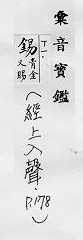 彙音寶鑑
丁一
錫 青金
又賜
(經上入聲.
P.178)